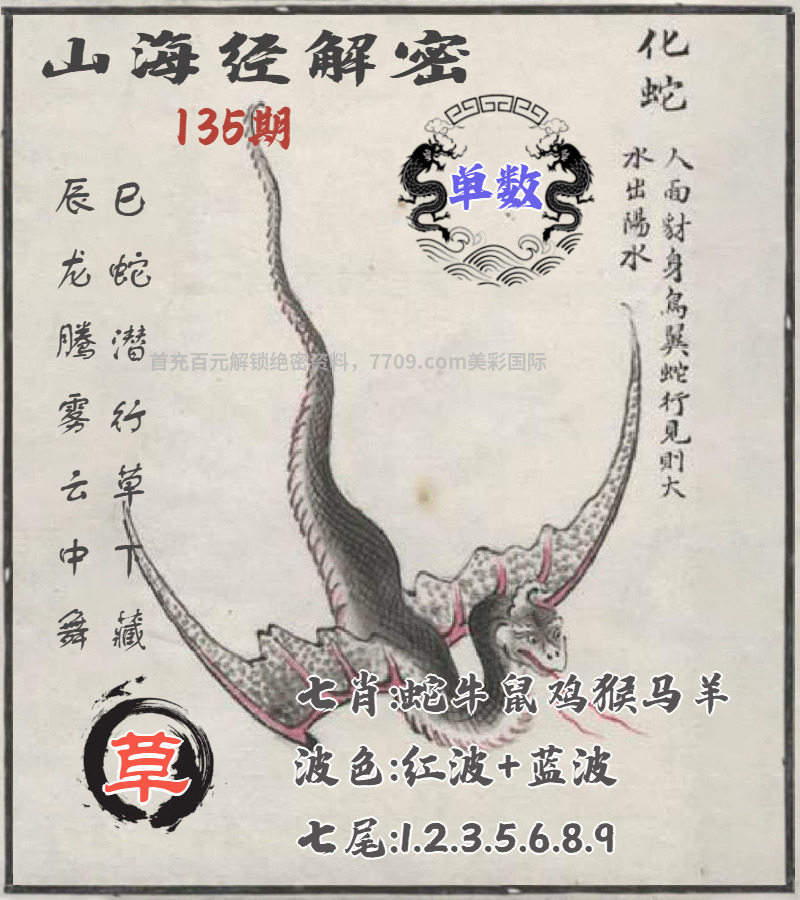 山海经解密
135期
单数
化蛇
人面豺身鳥翼蛇行見則大
水出陽水
巳蛇潜行草下藏
辰龙腾雾云中舞
首充百元解锁绝密资料，7709.com美彩国际
草
七肖:蛇牛鼠鸡猴马羊
波色:红波+蓝波
七尾:1.2.3.5.6.8.9